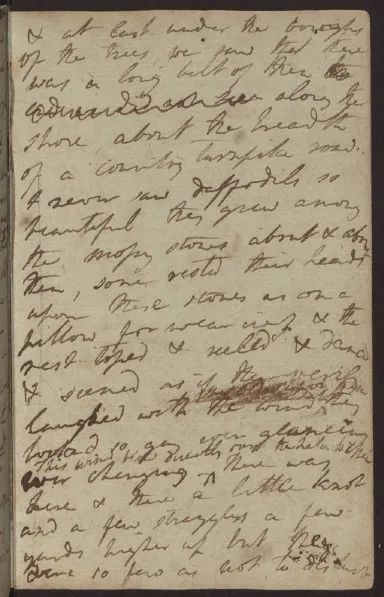 & at last under the boughs
of the trees we saw that there
was a long belt of them
along the
shore, about the breadth
of a country turnpike road.
I never saw daffodils so
beautiful they grew among
the mossy stones about & about
them, some rested their heads
upon these stones as on a
pillow for weariness & the
rest tossed & reeled & danced
& seemed as if they verily
laughed with the wind they
looked so gay ever glancing
This wind blew directly over the lake to them
ever changing There was
here & there a little knot
and a few stragglers a few
yards higher up but they
were so few as not to disturb